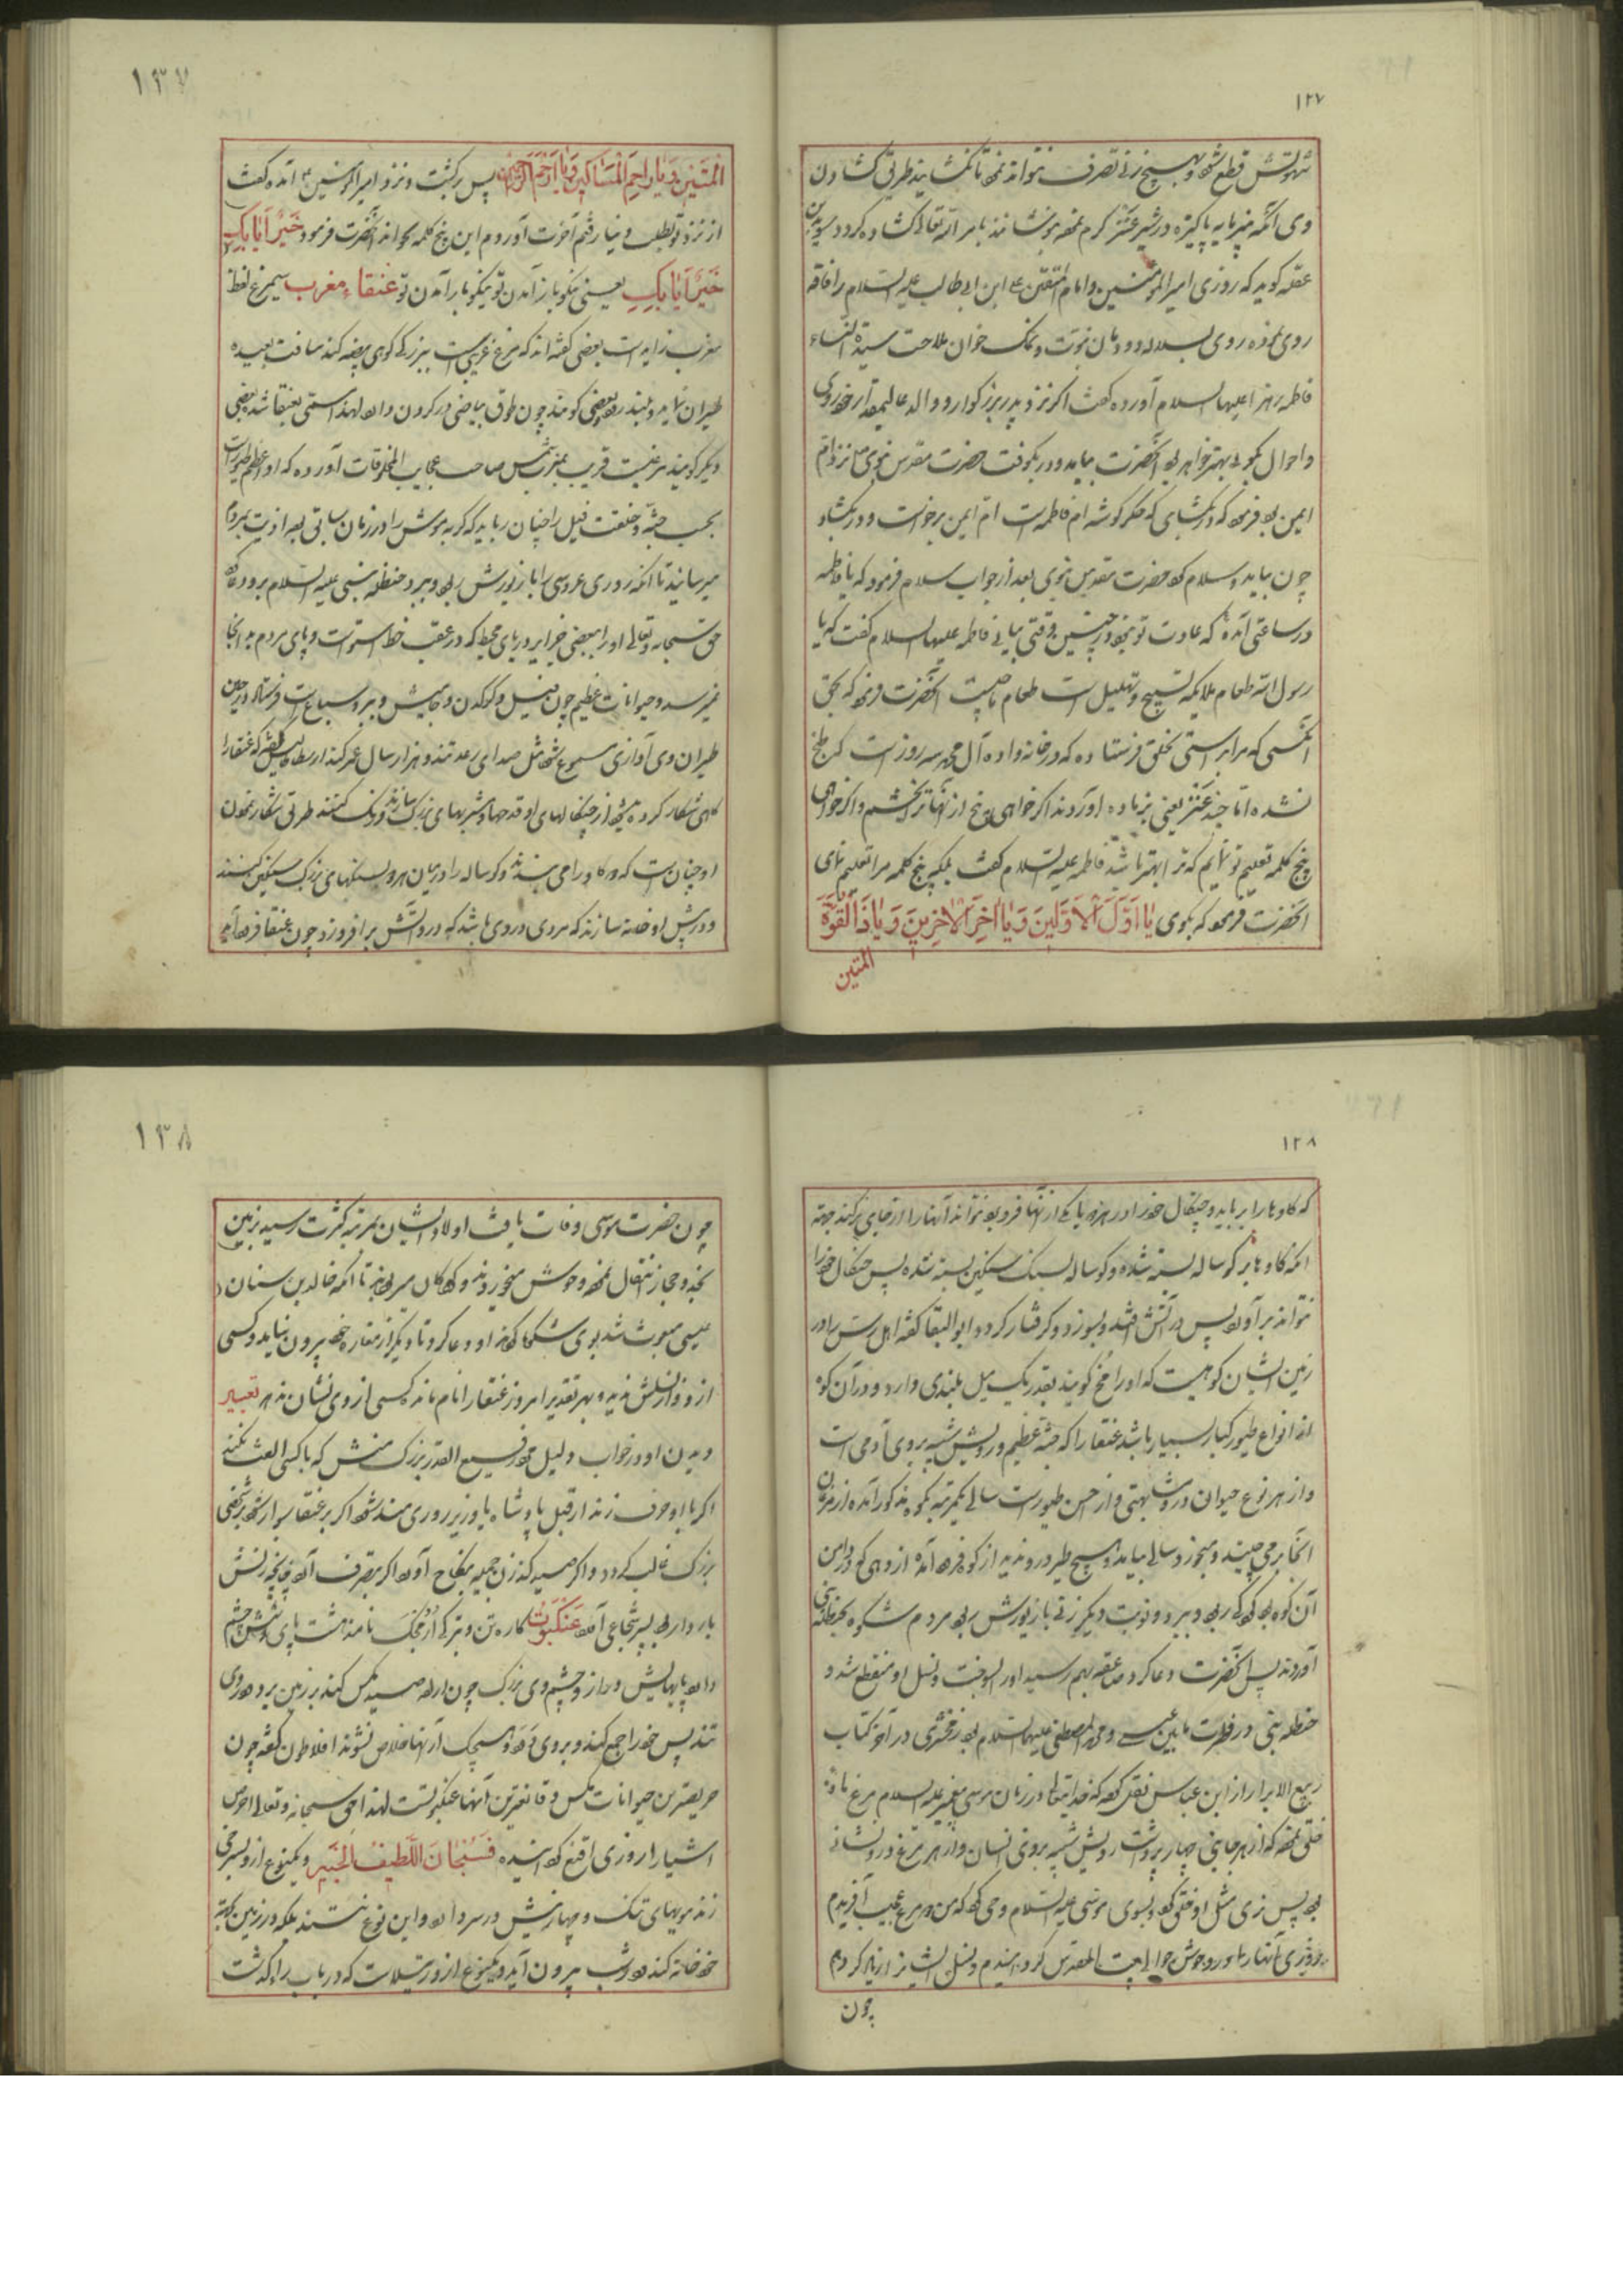 ۱۲۷
شهوتش قطع شود و بهیچ زنی تصرف نتواند نمود تا نکشایند طریق کشادن
وی آنکه پنیر مایه پاکیزه در شیر عنز گرم نموده بنوشانند بامر الله تعالی کشاده گردد سوید بن
عقله گوید که روزی امیر المؤمنین و امام المتقین علی ابن ابی طالب علیه السلام را فاقه
روی نموده روی بسلاله دودمان نبوت و نمک خوان ملاحت سیدة النساء
فاطمه زهرا علیها السلام آورده گفت اگر نزد پدر بزرگوار و والد عالیمقدار خود روی
و احوال بگویی بهتر خواهد بود آنحضرت بیاید و در بکوفت حضرت مقدس نبوی نزد ام
ایمن بود فرمود که در بکشای که جگر گوشه ام فاطمه است ام ایمن برخواست و در بکشاد
چون بیاید و سلام کرد حضرت مقدس نبوی بعد از جواب سلام فرمود که یا فاطمه
در ساعتی آمده که عادت تو نبود در چنین وقتی بیایی فاطمه علیها السلام گفت که یا
رسول الله طعام ملایکه تسبیح و تهلیل است طعام ما چیست آنحضرت فرمود که بحق
آنکسی که مرا براستی بخلق فرستاده که در خانواده آل محمد سه روز است که طبخ
نشده اما چند عنز یعنی بز ماده آوردند اگر خواهی پنج از آنها ترا بخشم و اگر خواهی
پنج کلمه تعلیم تو نمایم که ترا بهتر باشد فاطمه علیه السلام گفت بلکه پنج کلمه مرا تعلیم نمای
آنحضرت فرمود که بگوی یَا اَوَّلَ الْاَوَّلِینَ وَیَا اٰخِرَ الْاٰخِرِینَ وَیَا ذَا الْقُوَّةِ
المتین
۱۳۷
الْمَتِینِ وَیَا رَاحِمَ الْمَسَاکِینِ وَیَا اَرْحَمَ الرَّاحِمِینَ پس برگشت و نزد امیر المؤمنین آمده گفت
از نزد تو بطلب دنیا رفتم آخرت آوردم این پنج کلمه بخواند آنحضرت فرمود خَیْرٌ اَیَابُکِ
خَیْرٌ اَیَابُکِ یعنی نیکو باز آمدن تو نیکو باز آمدن تو عنقاء مغرب سیمرغ لفظ
مغرب زاید است بعضی گفته اند که مرغ غریبی است ببزرگی کوهی بیضه کند مسافت بعیده
طیران نماید و بلند رود بعضی گویند چون طوق بیاضی در گردن دارد لهذا مسمی بعنقا شد بعضی
دیگر گویند مرغیست قریب بمغرب شمس صاحب عجایب المخلوقات آورده که او اعظم طیورست
بحسب جثه و خلقت فیل را چنان رباید که گربه موش را در زمان سابق بود اذیت بمردم
میرسانید تا آنکه روزی عروسی را با زیورش ربود و ببرد حنظله نبی علیه السلام برو دعا کرد
حق سبحانه و تعالی او را ببعضی جزایر دریای محیط که در عقب خط استواست و پای مردم بدانجا
نمیرسد و حیوانات عظیم چون فیل و کرکدن و جامیش و ببر و سباع است فرستاد در حین
طیران وی آوازی مسموع شود مثل صدای رعد تند و هزار سال عمر کند ارسطاطالیس گفته که عنقا را
گاهی شکار کرده میشود از چنگالهای او قدحها و شربهای بزرگ سازند و رنگ کنند طریق شکار نمودن
او چنان است که دو گاو را می بندند و گوساله را در میان هر دو بسنگهای بزرگ سنگین کنند
و در پیش او خانه سازند که مردی در وی باشد که در و آتش برافروزد چون عنقا فرود آید
۱۲۸
که گاوها را برباید و چنگال خود را در هر دو یا یکی از آنها فرو برد نتواند آنها را از جای برکند جهته
آنکه گاوها بر گوساله بسته شده و گوساله بسنگ سنگین بسته شده پس چنگال خود را
نتواند برآورد پس در آتش افتد و بسوزد و گرفتار گردد و ابو البقا گفته اهل رس را در
زمین ایشان کوهیست که او را مخ گویند بقدر یک میل بلندی دارد و در آن کوه
از انواع طیور کبار بسیار باشد عنقا را که جثه عظیم و رویش شبیه بروی آدمی است
و از هر نوع حیوان درو مشابهتی و از احسن طیور است سالی یکمرتبه بکوه مذکور آمده از مرغان
آنجا برمی چیند و میخورد سالی بیاید و هیچ طیر درو ندید از کوه فرود آمده از دهی که در دامن
آن کوه بود کودکی ربود و ببرد و نوبت دیگر زنی با زیورش ربود مردم شکوه بحنظله نبی
آوردند پس آنحضرت دعا کرد صاعقه بهم رسید او را بسوخت و نسل او منقطع شد و
حنظله نبی در فترت مابین عیسی و محمد المصطفی علیهما السلام بود زمخشری در آخر کتاب
ربیع الابرار از ابن عباس نقل کرده که خدایتعالی در زمان موسی پیغمبر علیه السلام مرغ ماده
خلق نمود که از هر جانبی چهار پر داشت رویش شبیه بروی انسان و از هر مرغ درو نشانی
بود پس نری مثل او خلق کرد و بسوی موسی علیه السلام وحی کرد که من دو مرغ عجیب آفریدم
و روزی آنها را در وحوش حوالی بیت المقدس گردانیدم و نسل ایشان را زیاد کردم
چون
۱۳۸
چون حضرت موسی وفات یافت اولاد ایشان بمرتبه کثرت رسید بزمین
نجد و حجاز انتقال نمود و وحوش میخوردند و کودکان میربودند تا آنکه خالد بن سنان
عیسی مبعوث شد بوی شکوه کردند او دعا کرد تا دیگر از مغاره خود بیرون نیاید و کسی
از و و از نسلش ندید و بهر تقدیر امروز عنقا را نام مانده کسی از وی نشان ندهد تعبیر
دیدن او در خواب دلیل مرد رفیع القدر بزرگ منش که با کسی الفت نکند
اگر با او حرف زند از قبل پادشاه یا وزیر روزی مند شود اگر بر عنقا سوار شود بر شخصی
بزرگ غالب گردد و اگر صید کند زن جمیله بنکاح آورد اگر بتصرف آورد چنانچه زنش
باردار بود پسر شجاعی آورد عَنْکَبُوت کاره تن و بترکی اُرُمْجَک نامند هشت پای و شش چشم
دارد پایهایش دراز و چشم وی بزرگ چون اراده صید مگس کند بر زمین برود و ردی
تند پس خود را جمع کند و بروی جهد و هیچیک از آنها خلاص نشوند افلاطون گفته چون
حریصترین حیوانات مگس و قانعترین آنها عنکبوتست لهذا حق سبحانه و تعالی احرص
اشیا را روزی اقنع گردانیده فَسُبْحَانَ اللَّطِیفِ الْخَبِیرِ و یکنوع ازو بسرخی
زند مویهای تنک و چهار نیش در سر دارد و این نوع نتنند بلکه در زمین کهنه
خود خانه کند و شب بیرون آید و یکنوع ازو رتیلاست که در باب را گذشت